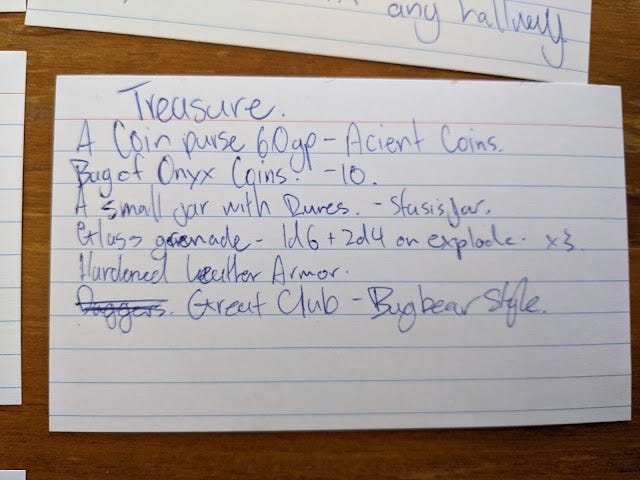 any hallway
Treasure.
A Coin purse 60gp - Acient Coins.
Bag of Onyx Coins. - 10.
A small jar with Runes. - Stasis Jar.
Glass grenade - 1d6 + 2d4 on explode. x3.
Hardened Leather Armor.
Daggers. Great Club - Bugbear Style.